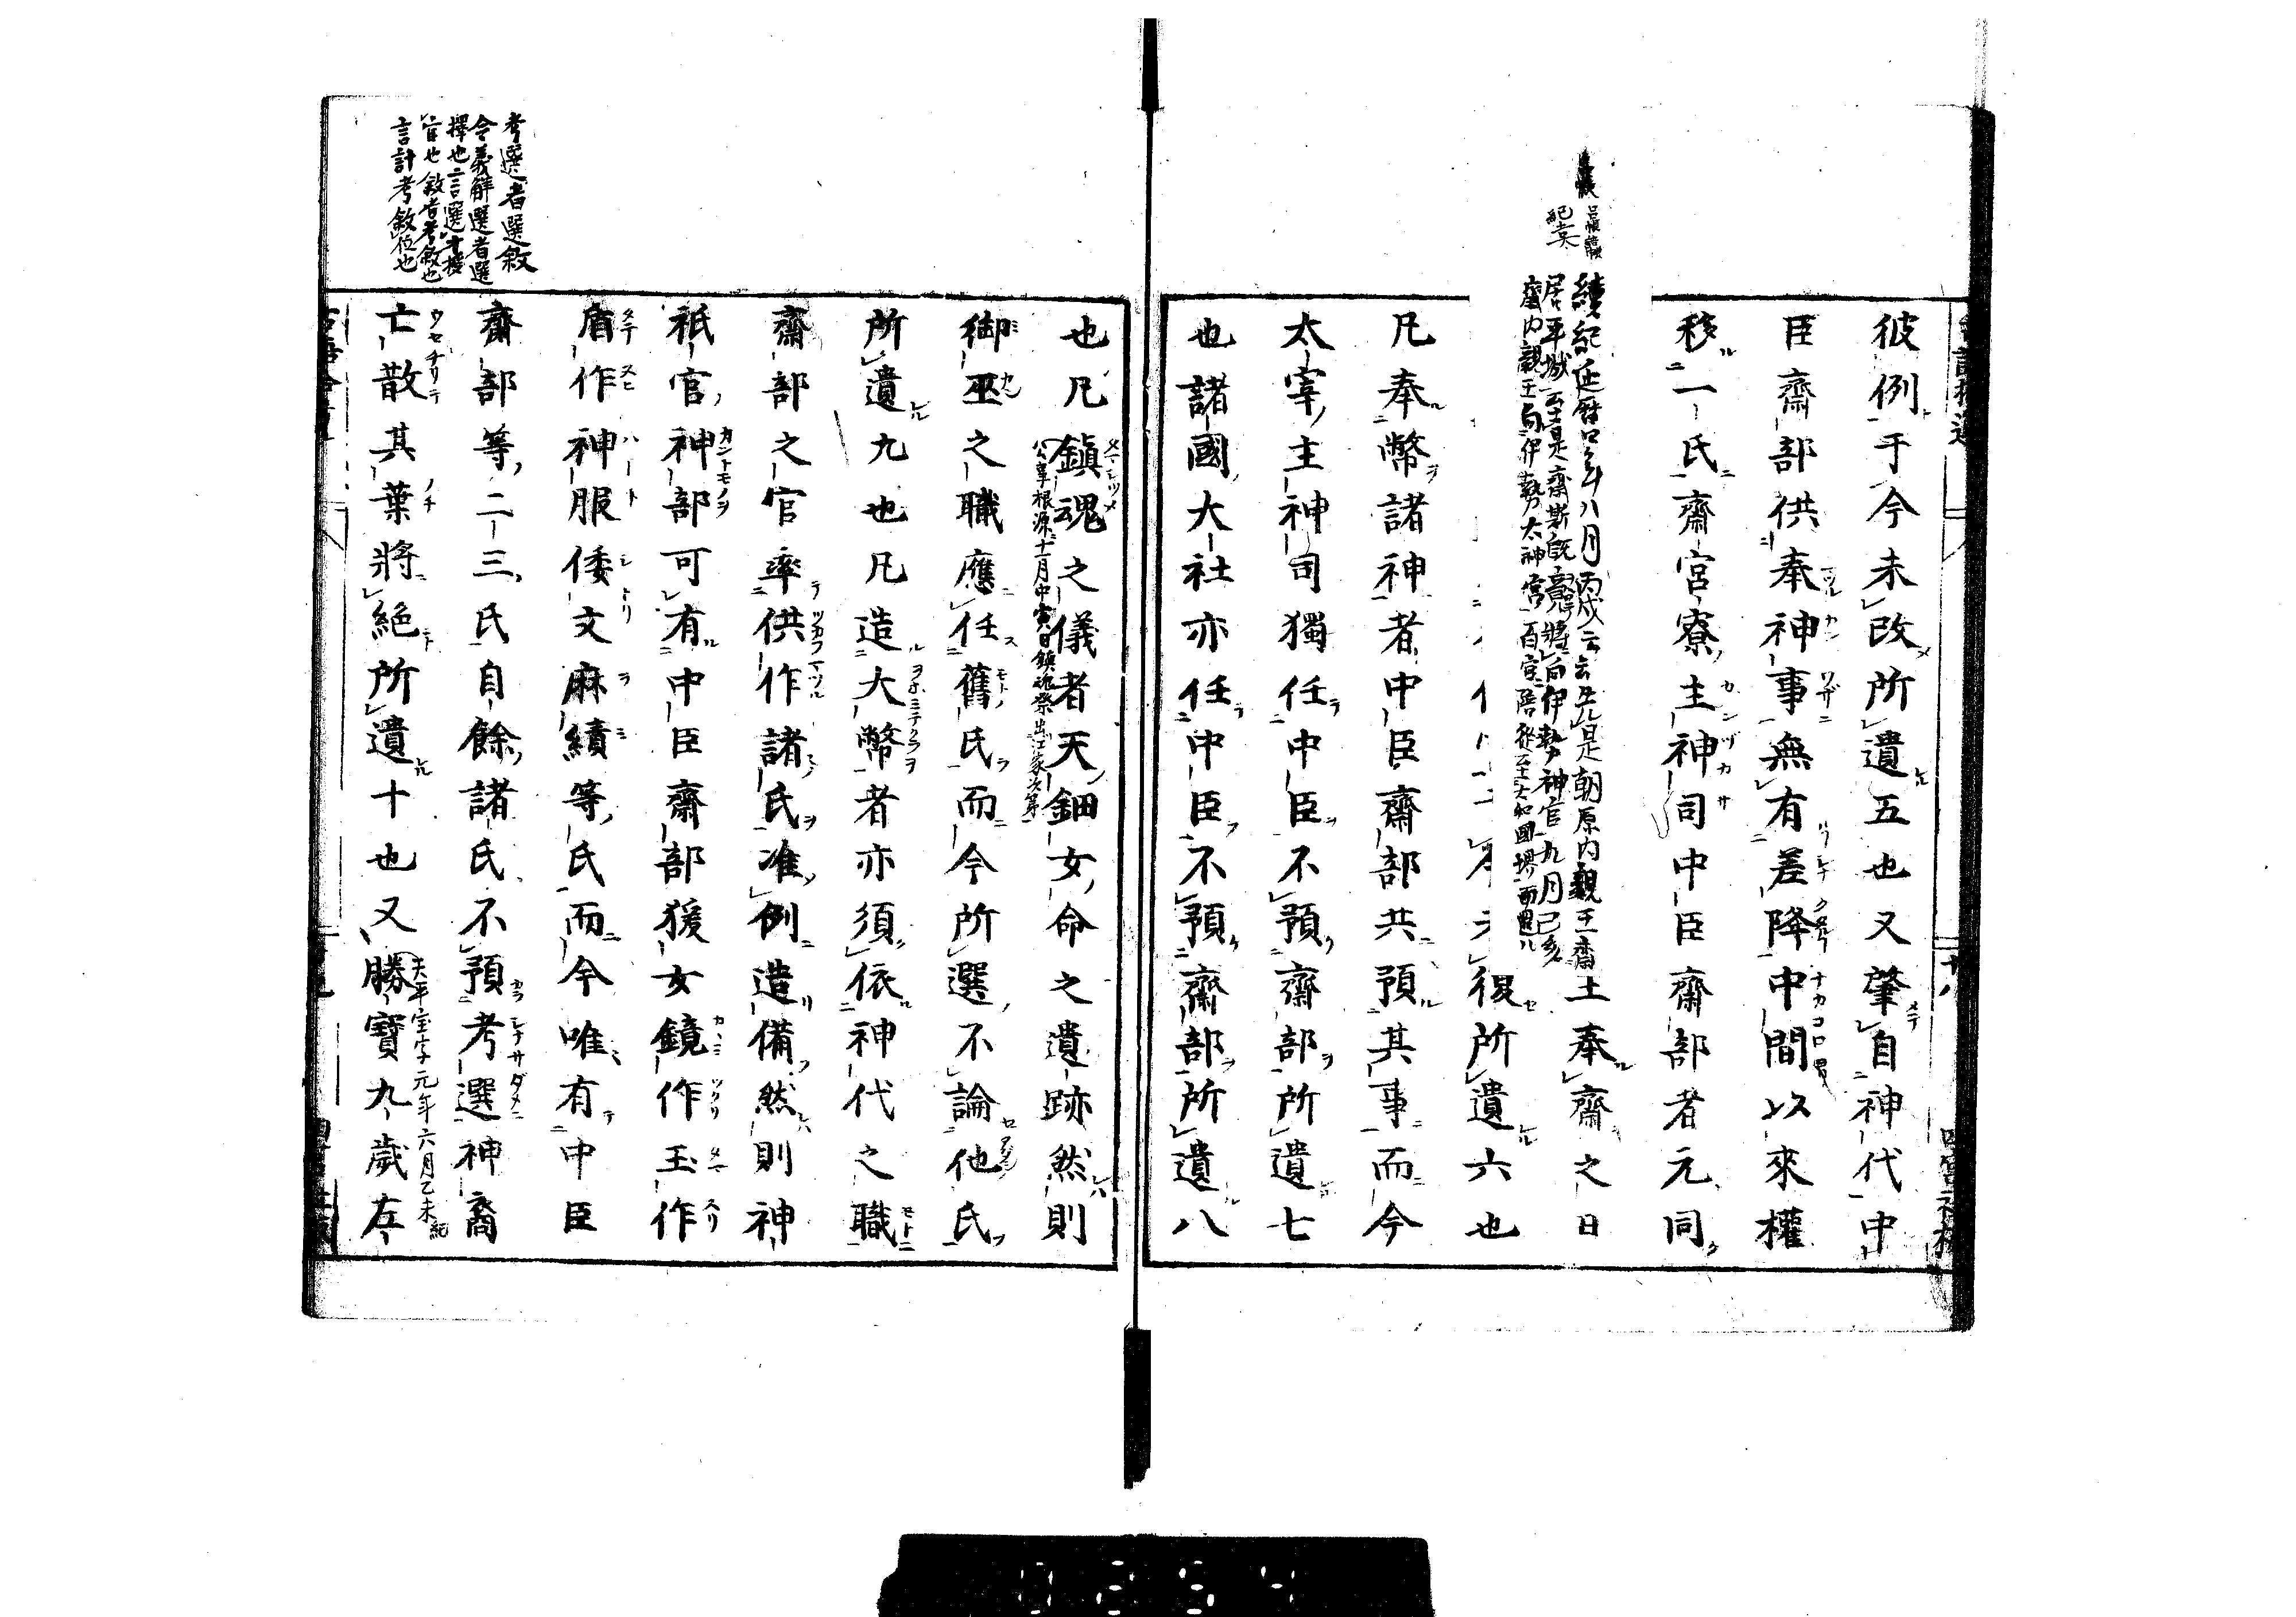 彼例于今未改所遺五也又肇自神代中
臣齋部供奉神事無有差降中間以來權
移一氏齋宮寮主神司中臣齋部者元同
續紀延曆四年八月丙戌云云先是朝原內親王齋
居平城至是齋斯既竟將向伊勢神宮九月己亥
齋內親王向伊勢太神宮百官陪從至大和國堺而還
奉齋之日
復所遺六也
凡奉幣諸神者中臣齋部共預其事而今
太宰主神司獨任中臣不預齋部所遺七
也諸國大社亦任中臣不預齋部所遺八
也凡鎮魂之儀者天鈿女命之遺跡然則
公事根源十一月中寅日鎮魂祭出江家次第
御巫之職應任舊氏而今所選不論他氏
所遺九也凡造大幣者亦須依神代之職
齋部之官率供作諸氏准例造備然則神
祇官神部可有中臣齋部猨女鏡作玉作
盾作神服倭文麻績等氏而今唯有中臣
齋部等二三氏自餘諸氏不預考選神裔
亡散其葉將絕所遺十也又勝寶九歲左
天平宝字元年六月乙未紀
考選者選敘
令義解選者選
擇也言選才授
官也敘者考敘也
言計考敘位也